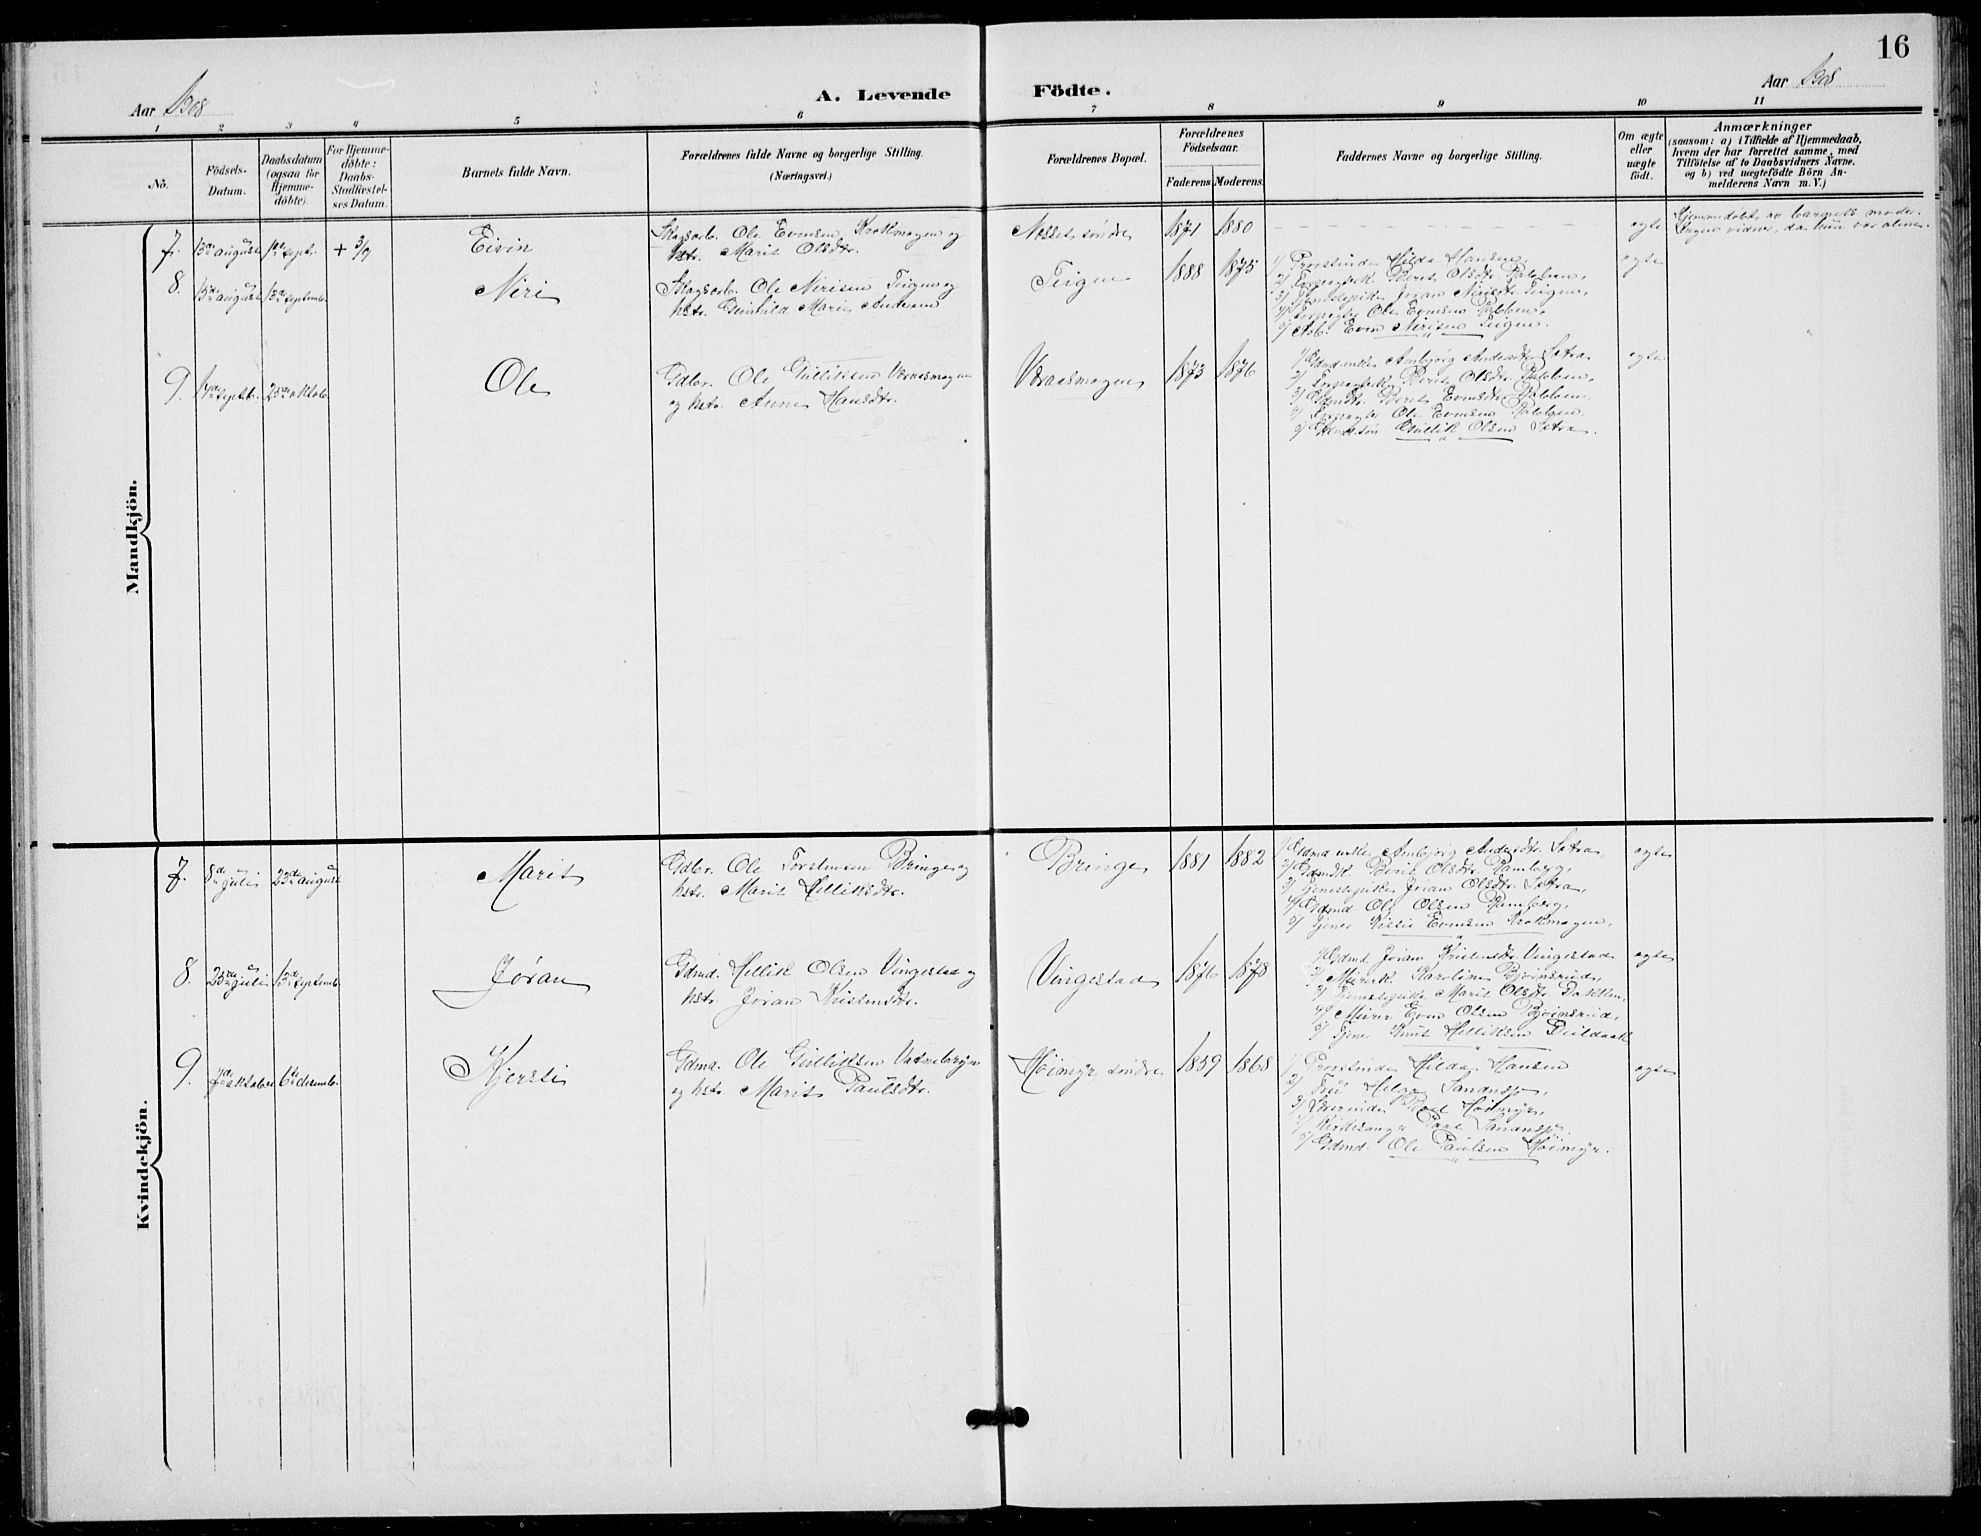 16
Aar 1908
A. Levende Födte.
Aar 1908
1 2 3 4 5 6 7 8 9 10 11
No.
Födsels-
Datum.
Daabsdatum
(ogsaa for
Hjemme-
döbte).
For Hjemme-
döbte:
Daabs-
Stadfæstel-
ses Datum.
Barnets fulde Navn.
Forældrenes fulde Navne og borgerlige Stilling.
(Næringsvei.)
Forældrenes Bopæl.
Forældrenes
Födselsaar.
Faderens Moderens.
Faddernes Navne og borgerlige Stilling.
Om ægte
eller
uægte
födt.
Anmærkninger
(saasom: a) i Tilfælde af Hjemmedaab,
hvem der har forrettet samme, med
Tilföielse af to Daabsvidners Navne.
og b) ved uægtefödte Börn An-
melderens Navn m. V.)
Mandkjön.
7. 13de august 1ste septr. + 3/9
Eivin
Skogsarb. Ole Evensen Krokmogen og
hstr. Marit Olsdtr.
Næsset søndre
1871 1880
egte
Hjemmedøbt av barnets moder.
Ingen vidner, da hun var alene.
8. 13de august 13de septemb.
Niri
Skogsarb. Ole Nirisen Teigen og
hstr. Gunhild Marie Andersen
Teigen
1888 1875
1/ Provstinde Hilda Hansen,
2/ Forpagtersk. Berit Olsdtr.
3/ Tjenestepike Joran Nirisdtr. Teigen,
4/ Forpagter Ole Evensen
5/ Arb. Even Nirisen Teigen.
egte
9. 17de septb. 25de oktob.
Ole
Gdbr. Ole Gulliksen Væraasmogen
og hstr. Anne Hansdtr.
Væraasmogen
1873 1876
1/ Gdmd.enke Ambjørg Andersdtr. Sætra,
2/ Forpagtersk. Berit Olsdtr.
3/ Berit Evensdtr.
4/ Forpagter Ole Evensen
5/ Gullik Olsen Sætra.
egte
Kvindekjön.
7. 8de juli 23de august
Marit
Gdbr. Ole Torstensen Bringe og
hstr. Marit Helliksdtr.
Bringe
1881 1882
1/ Gdmd.enke Ambjørg Andersdtr. Sætra,
2/ Gdmdsk. Berit Olsdtr. Ramberg,
3/ Tjenestepike Joran Olsdtr. Sætra,
4/ Gdmd Ole Olsen Ramberg,
5/ Tjener Evensen Krokmogen.
egte
8. 25de juli 13de septemb.
Jøran
Gdmd. Hellik Olsen Vingestad og
hstr. Joran Kristensdtr.
Vingestad
1876 1878
1/ Gdmd. Joran Kristensdtr. Vingestad
2/ Murersk. Karoline Bjørnsrud,
3/ Tjenestepike Marit Olsdtr.
4/ Murer Even Olsen Bjørnsrud,
5/ Tjener Knut Helliksen
egte
9. 7de oktober 6te desemb.
Kjersti
Gdmd. Ole Gulliksen
og hstr. Marit Paulsdtr.
Høimyr søndre
1859 1868
1/ Provstinde Hilda Hansen
2/ Fru Helga
3/ Høimyr,
4/ Kirkesanger
5/ Gdmd. Ole Paulsen Høimyr.
egte